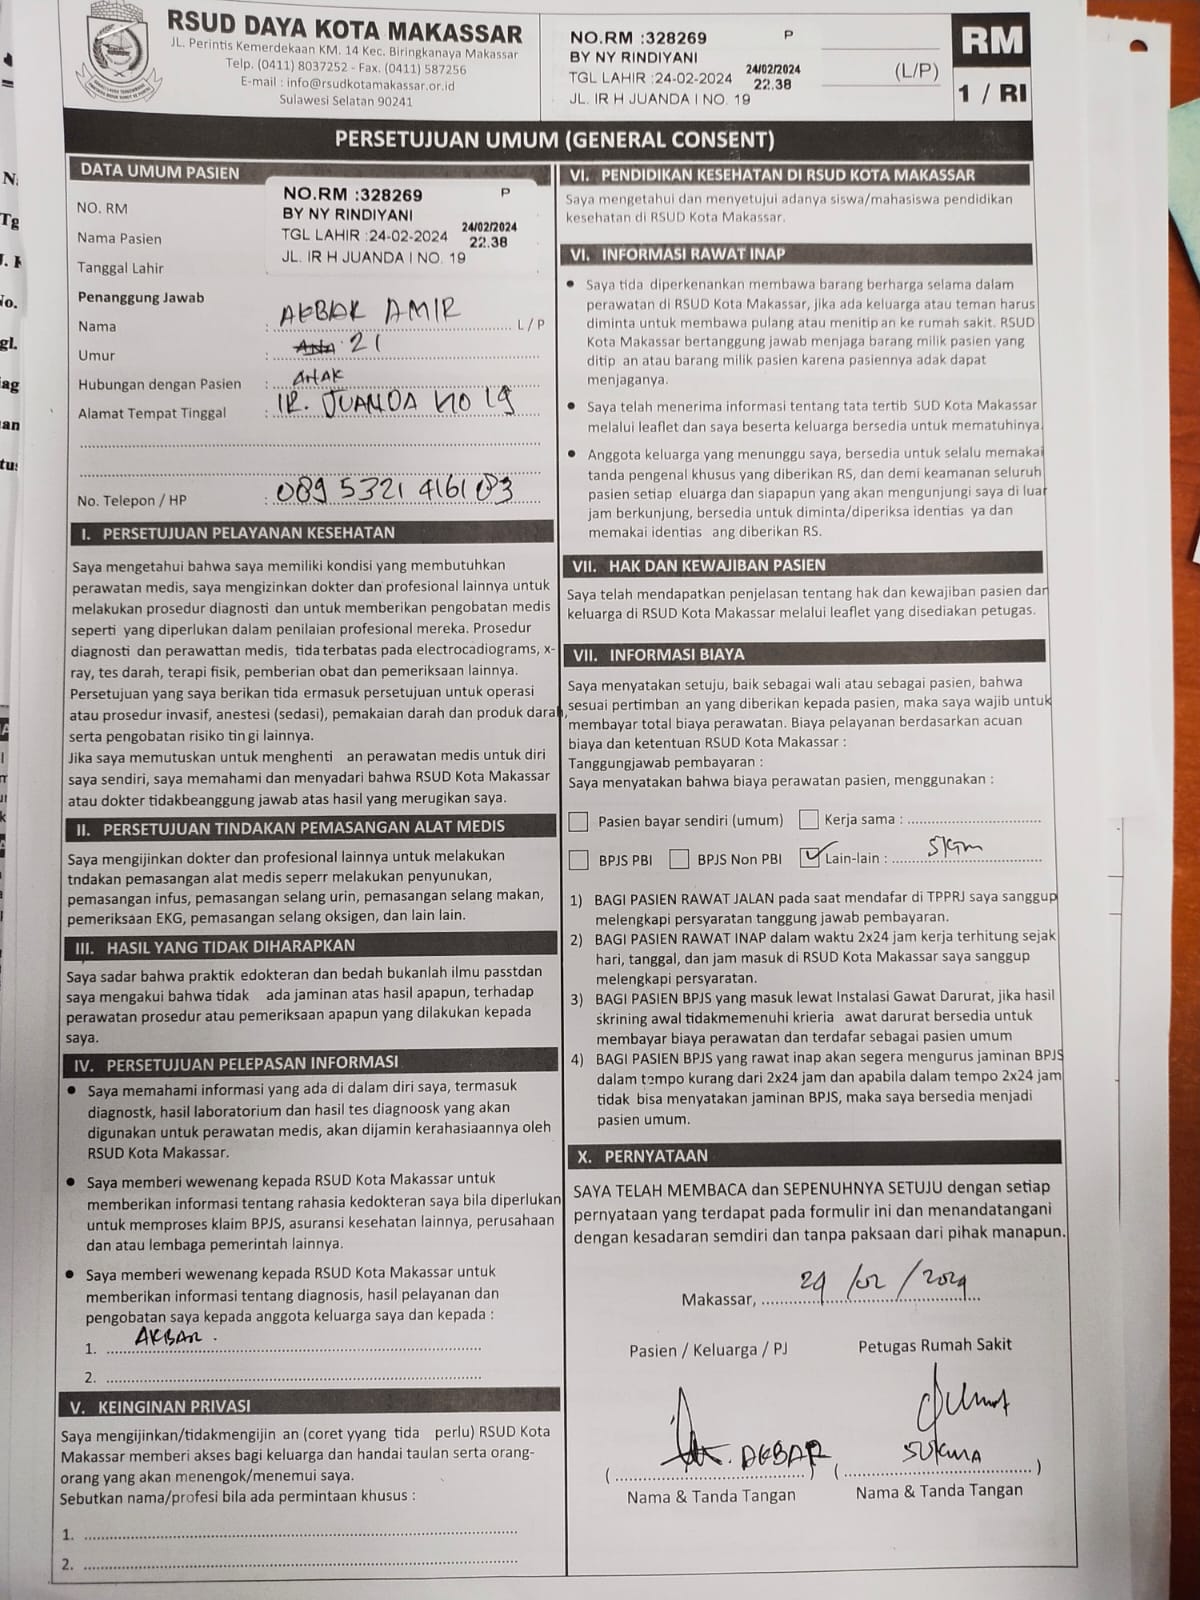 RSUD DAYA KOTA MAKASSAR
JL. Perintis Kemerdekaan KM. 14 Kec. Biringkanaya Makassar
Telp. (0411) 8037252 - Fax. (0411) 587256
E-mail : info@rsudkotamakassar.or.id
Sulawesi Selatan 90241
NO.RM :328269 P
BY NY RINDIYANI
TGL LAHIR :24-02-2024 24/02/2024 22.38
JL. IR H JUANDA I NO. 19
(L/P)
RM
1 / RI
PERSETUJUAN UMUM (GENERAL CONSENT)
DATA UMUM PASIEN
NO.RM :328269 P
BY NY RINDIYANI
TGL LAHIR :24-02-2024 24/02/2024 22.38
JL. IR H JUANDA I NO. 19
NO. RM
Nama Pasien
Tanggal Lahir
Penanggung Jawab
Nama : AKBAR AMIR L / P
Umur : 21
Hubungan dengan Pasien : ANAK
Alamat Tempat Tinggal : IR. JUANDA NO 19
No. Telepon / HP : 089 5321 4161 83
I. PERSETUJUAN PELAYANAN KESEHATAN
Saya mengetahui bahwa saya memiliki kondisi yang membutuhkan
perawatan medis, saya mengizinkan dokter dan profesional lainnya untuk
melakukan prosedur diagnosti dan untuk memberikan pengobatan medis
seperti yang diperlukan dalam penilaian profesional mereka. Prosedur
diagnosti dan perawattan medis, tida terbatas pada electrocadiograms, x-
ray, tes darah, terapi fisik, pemberian obat dan pemeriksaan lainnya.
Persetujuan yang saya berikan tida ermasuk persetujuan untuk operasi
atau prosedur invasif, anestesi (sedasi), pemakaian darah dan produk darah,
serta pengobatan risiko tin gi lainnya.
Jika saya memutuskan untuk menghenti an perawatan medis untuk diri
saya sendiri, saya memahami dan menyadari bahwa RSUD Kota Makassar
atau dokter tidakbeanggung jawab atas hasil yang merugikan saya.
II. PERSETUJUAN TINDAKAN PEMASANGAN ALAT MEDIS
Saya mengijinkan dokter dan profesional lainnya untuk melakukan
tndakan pemasangan alat medis seperr melakukan penyunukan,
pemasangan infus, pemasangan selang urin, pemasangan selang makan,
pemeriksaan EKG, pemasangan selang oksigen, dan lain lain.
III. HASIL YANG TIDAK DIHARAPKAN
Saya sadar bahwa praktik edokteran dan bedah bukanlah ilmu passtdan
saya mengakui bahwa tidak ada jaminan atas hasil apapun, terhadap
perawatan prosedur atau pemeriksaan apapun yang dilakukan kepada
saya.
IV. PERSETUJUAN PELEPASAN INFORMASI
• Saya memahami informasi yang ada di dalam diri saya, termasuk
diagnostk, hasil laboratorium dan hasil tes diagnoosk yang akan
digunakan untuk perawatan medis, akan dijamin kerahasiaannya oleh
RSUD Kota Makassar.
• Saya memberi wewenang kepada RSUD Kota Makassar untuk
memberikan informasi tentang rahasia kedokteran saya bila diperlukan
untuk memproses klaim BPJS, asuransi kesehatan lainnya, perusahaan
dan atau lembaga pemerintah lainnya.
• Saya memberi wewenang kepada RSUD Kota Makassar untuk
memberikan informasi tentang diagnosis, hasil pelayanan dan
pengobatan saya kepada anggota keluarga saya dan kepada :
1. AKBAR.
2.
V. KEINGINAN PRIVASI
Saya mengijinkan/tidakmengijin an (coret yyang tida perlu) RSUD Kota
Makassar memberi akses bagi keluarga dan handai taulan serta orang-
orang yang akan menengok/menemui saya.
Sebutkan nama/profesi bila ada permintaan khusus :
1.
2.
VI. PENDIDIKAN KESEHATAN DI RSUD KOTA MAKASSAR
Saya mengetahui dan menyetujui adanya siswa/mahasiswa pendidikan
kesehatan di RSUD Kota Makassar.
VI. INFORMASI RAWAT INAP
• Saya tida diperkenankan membawa barang berharga selama dalam
perawatan di RSUD Kota Makassar, jika ada keluarga atau teman harus
diminta untuk membawa pulang atau menitip an ke rumah sakit. RSUD
Kota Makassar bertanggung jawab menjaga barang milik pasien yang
ditip an atau barang milik pasien karena pasiennya adak dapat
menjaganya.
• Saya telah menerima informasi tentang tata tertib SUD Kota Makassar
melalui leaflet dan saya beserta keluarga bersedia untuk mematuhinya.
• Anggota keluarga yang menunggu saya, bersedia untuk selalu memakai
tanda pengenal khusus yang diberikan RS, dan demi keamanan seluruh
pasien setiap eluarga dan siapapun yang akan mengunjungi saya di luar
jam berkunjung, bersedia untuk diminta/diperiksa identias ya dan
memakai identias ang diberikan RS.
VII. HAK DAN KEWAJIBAN PASIEN
Saya telah mendapatkan penjelasan tentang hak dan kewajiban pasien dan
keluarga di RSUD Kota Makassar melalui leaflet yang disediakan petugas.
VII. INFORMASI BIAYA
Saya menyatakan setuju, baik sebagai wali atau sebagai pasien, bahwa
sesuai pertimban an yang diberikan kepada pasien, maka saya wajib untuk
membayar total biaya perawatan. Biaya pelayanan berdasarkan acuan
biaya dan ketentuan RSUD Kota Makassar :
Tanggungjawab pembayaran :
Saya menyatakan bahwa biaya perawatan pasien, menggunakan :
Pasien bayar sendiri (umum) Kerja sama :
BPJS PBI BPJS Non PBI Lain-lain : SKTM
1) BAGI PASIEN RAWAT JALAN pada saat mendafar di TPPRJ saya sanggup
melengkapi persyaratan tanggung jawab pembayaran.
2) BAGI PASIEN RAWAT INAP dalam waktu 2x24 jam kerja terhitung sejak
hari, tanggal, dan jam masuk di RSUD Kota Makassar saya sanggup
melengkapi persyaratan.
3) BAGI PASIEN BPJS yang masuk lewat Instalasi Gawat Darurat, jika hasil
skrining awal tidakmemenuhi krieria awat darurat bersedia untuk
membayar biaya perawatan dan terdafar sebagai pasien umum
4) BAGI PASIEN BPJS yang rawat inap akan segera mengurus jaminan BPJS
dalam tempo kurang dari 2x24 jam dan apabila dalam tempo 2x24 jam
tidak bisa menyatakan jaminan BPJS, maka saya bersedia menjadi
pasien umum.
X. PERNYATAAN
SAYA TELAH MEMBACA dan SEPENUHNYA SETUJU dengan setiap
pernyataan yang terdapat pada formulir ini dan menandatangani
dengan kesadaran semdiri dan tanpa paksaan dari pihak manapun.
Makassar, 24 /02 /2024
Pasien / Keluarga / PJ Petugas Rumah Sakit
(AKBAR) (SUKMA)
Nama & Tanda Tangan Nama & Tanda Tangan